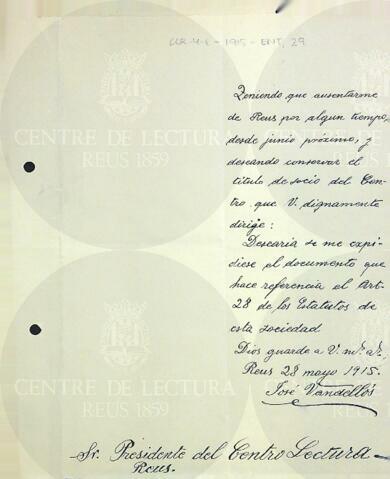 CLR-4-1-1915-ENT, 29
Teniendo que ausentarme
de Reus por algun tiempo,
desde junio próximo, y
deseando conservar el
titulo de socio del Cen-
tro que V. dignamente
dirige:
Desearia se me expi-
diese el documento que
hace referencia el Art-
28 de los Estatutos de
esta sociedad
Dios guarde a V. ms. as.
Reus 28 mayo 1915.
José Vandellós
Sr. Presidente del Centro Lectura-
Reus.
CENTRE DE LECTURA
REUS 1859
CENTRE DE LECTURA
REUS 1859